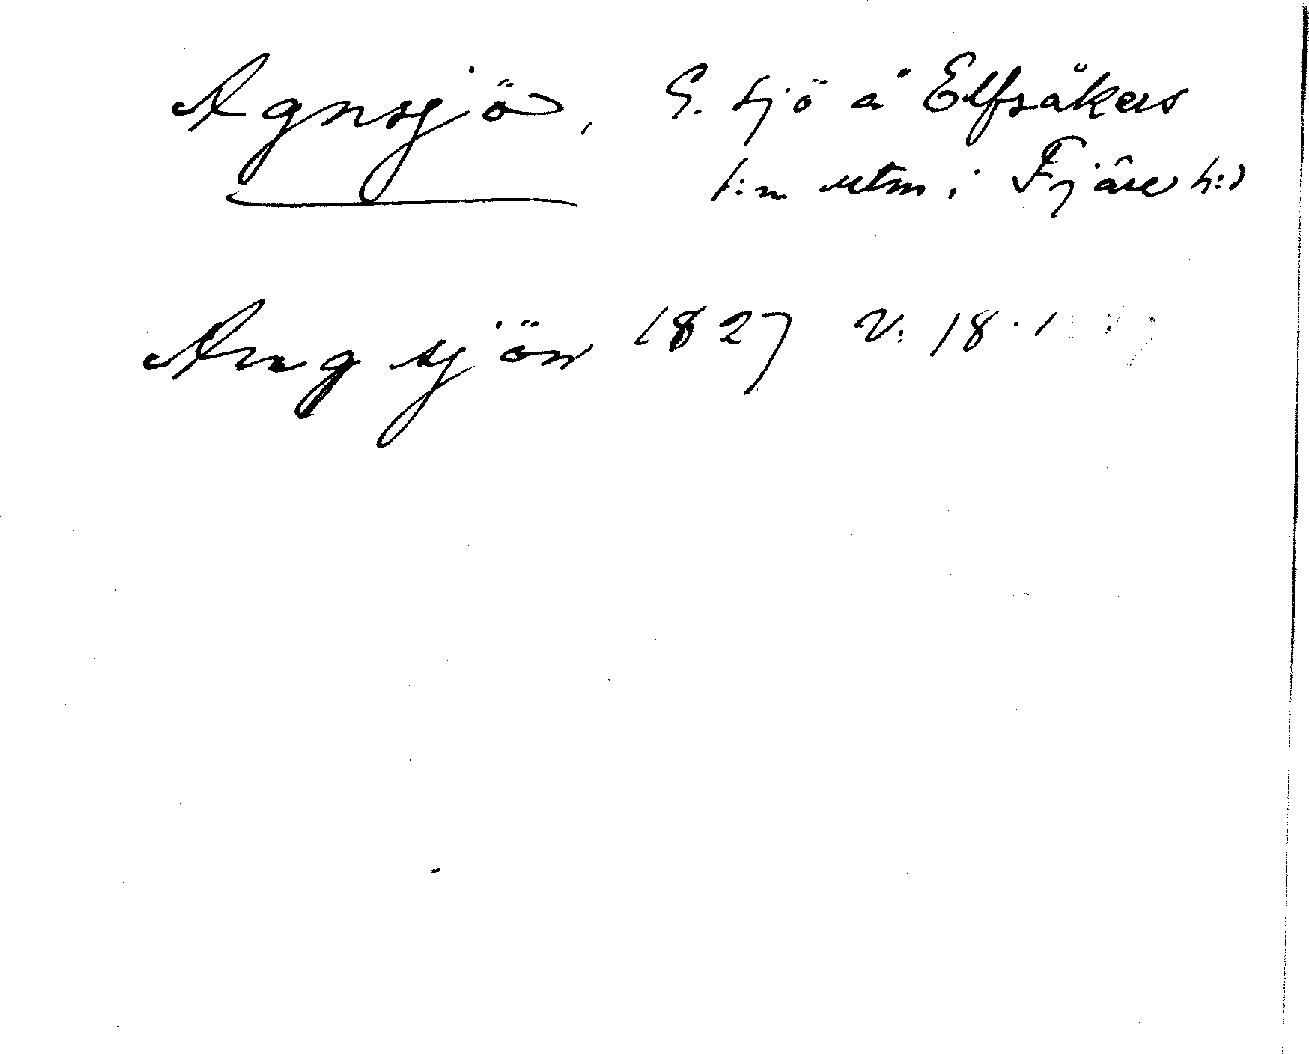 Agnsjö, G. sjö å Elfsåkers
h:m utm i Fjäre h:d
Angsjön 1827 V: 18.1